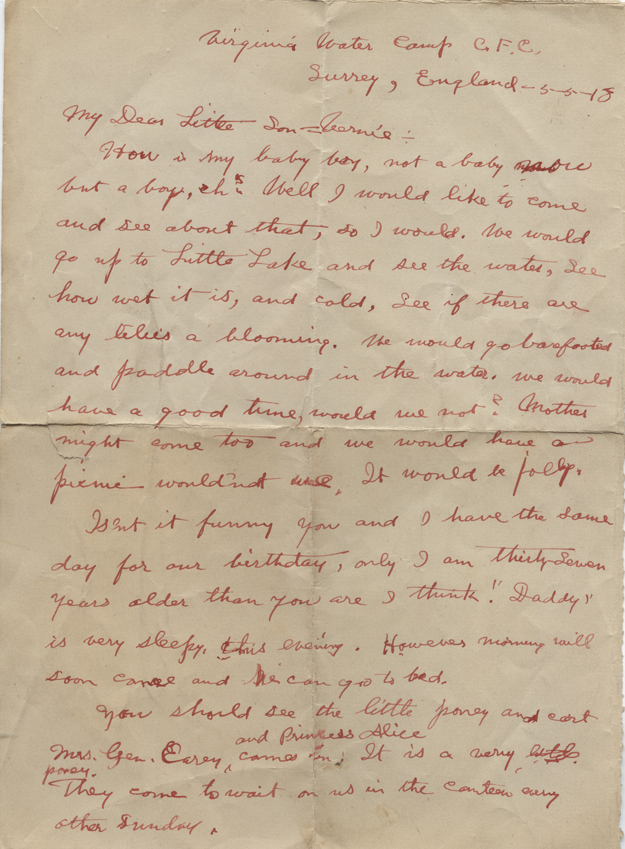 Virginia Water Camp C.F.C.
Surrey, England - 5-5-18
My Dear Little Son - Bernie:-
How is my baby boy, not a baby now
but a boy, eh? Well I would like to come
and see about that, so I would. We would
go up to Little Lake and see the water, see
how wet it is, and cold, see if there are
any lilies a blooming. We would go barefooted
and paddle around in the water. we would
have a good time, would we not? Mother
might come too and we would have a
picnic wouldnt we, It would be jolly.
Isent it funny you and I have the same
day for our birthday, only I am thirty-seven
years older than you are I think! "Daddy"
is very sleepy, this evening. However morning will
soon come and he can go to bed.
You should see the little poney and cart
and Princess Alice
Mrs. Gen. Carey, came in. It is a very little
poney.
They come to wait on us in the canteen every
other Sunday.